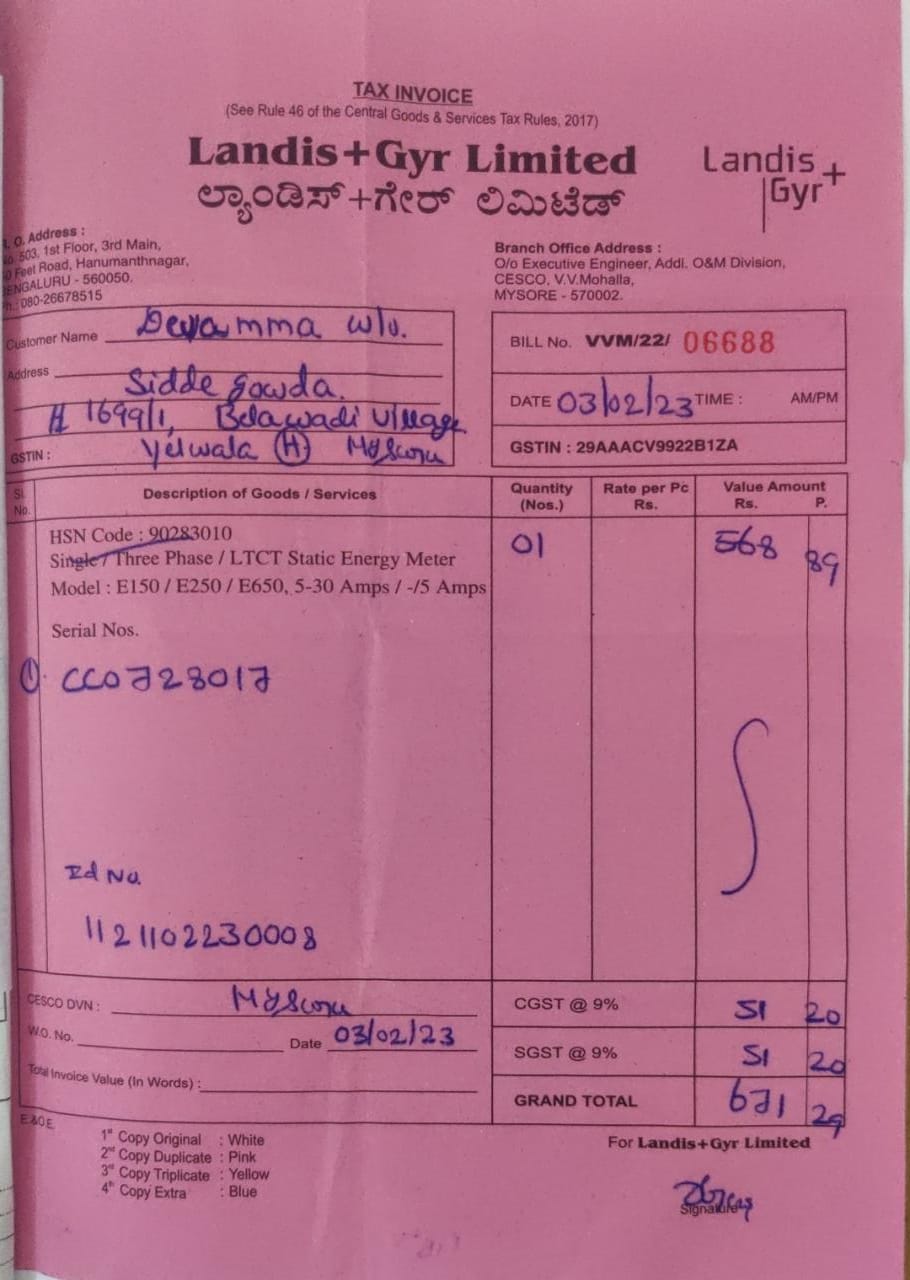 TAX INVOICE
(See Rule 46 of the Central Goods & Services Tax Rules, 2017)
Landis+Gyr Limited
Landis+
Gyr
ಲ್ಯಾಂಡಿಸ್+ಗೇರ್ ಲಿಮಿಟೆಡ್
. O. Address :
503, 1st Floor, 3rd Main,
Feet Road, Hanumanthnagar,
ENGALURU - 560050.
080-26678515
Branch Office Address :
O/o Executive Engineer, Addl. O&M Division,
CESCO, V.V.Mohalla,
MYSORE - 570002.
Customer Name Devamma w/o.
Address Sidde gowda.
# 1699/1, Belawadi Village
Yelwala (H) Mysoru
GSTIN :
BILL No. VVM/22/ 06688
DATE 03/02/23 TIME : AM/PM
GSTIN : 29AAACV9922B1ZA
Sl. No. Description of Goods / Services Quantity (Nos.) Rate per Pc Rs. Value Amount Rs. P.
HSN Code : 90283010 01 568 89
Single / Three Phase / LTCT Static Energy Meter
Model : E150 / E250 / E650, 5-30 Amps / -/5 Amps
Serial Nos.
1. CC0728017
Id No.
1121102230008
CESCO DVN : Mysoru
W.O. No. Date 03/02/23
Total Invoice Value (In Words) :
CGST @ 9% 51 20
SGST @ 9% 51 20
GRAND TOTAL 671 29
E&OE
1st Copy Original : White
2nd Copy Duplicate : Pink
3rd Copy Triplicate : Yellow
4th Copy Extra : Blue
For Landis+Gyr Limited
Signature